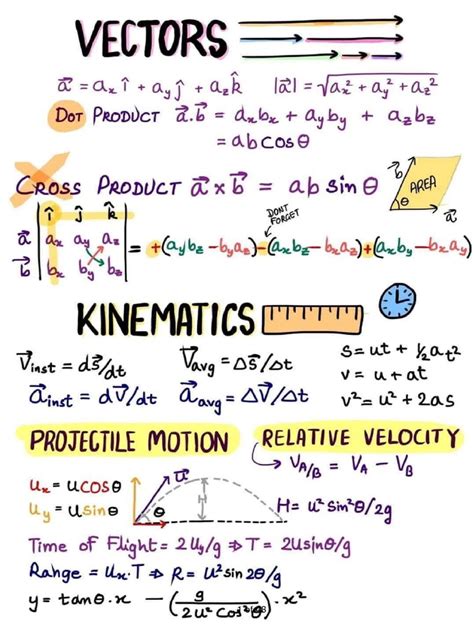 VECTORS
a⃗ = aₓ î + aᵧ ĵ + a_z k̂   |a⃗| = √(aₓ² + aᵧ² + a_z²)
DOT PRODUCT a⃗.b⃗ = aₓbₓ + aᵧbᵧ + a_zb_z
= ab cosθ
CROSS PRODUCT a⃗ × b⃗ = ab sin θ
b⃗ AREA θ a⃗
DONT FORGET
î ĵ k̂
a⃗ aₓ aᵧ a_z
b⃗ bₓ bᵧ b_z
= +(aᵧb_z − bᵧa_z) − (aₓb_z − bₓa_z) + (aₓbᵧ − bₓaᵧ)
KINEMATICS
V⃗inst = ds⃗/dt   V⃗avg = Δs⃗/Δt   s = ut + ½at²
a⃗inst = dv⃗/dt   a⃗avg = ΔV⃗/Δt   v = u + at
v² = u² + 2as
PROJECTILE MOTION   RELATIVE VELOCITY
V_A/B = V_A − V_B
uₓ = ucosθ   u⃗   H   θ   H = u² sin²θ/2g
uᵧ = usinθ
Time of Flight = 2uᵧ/g ⇒ T = 2usinθ/g
Range = uₓ.T ⇒ R = u² sin 2θ/g
y = tanθ.x − (g / 2u² cos²θ).x²